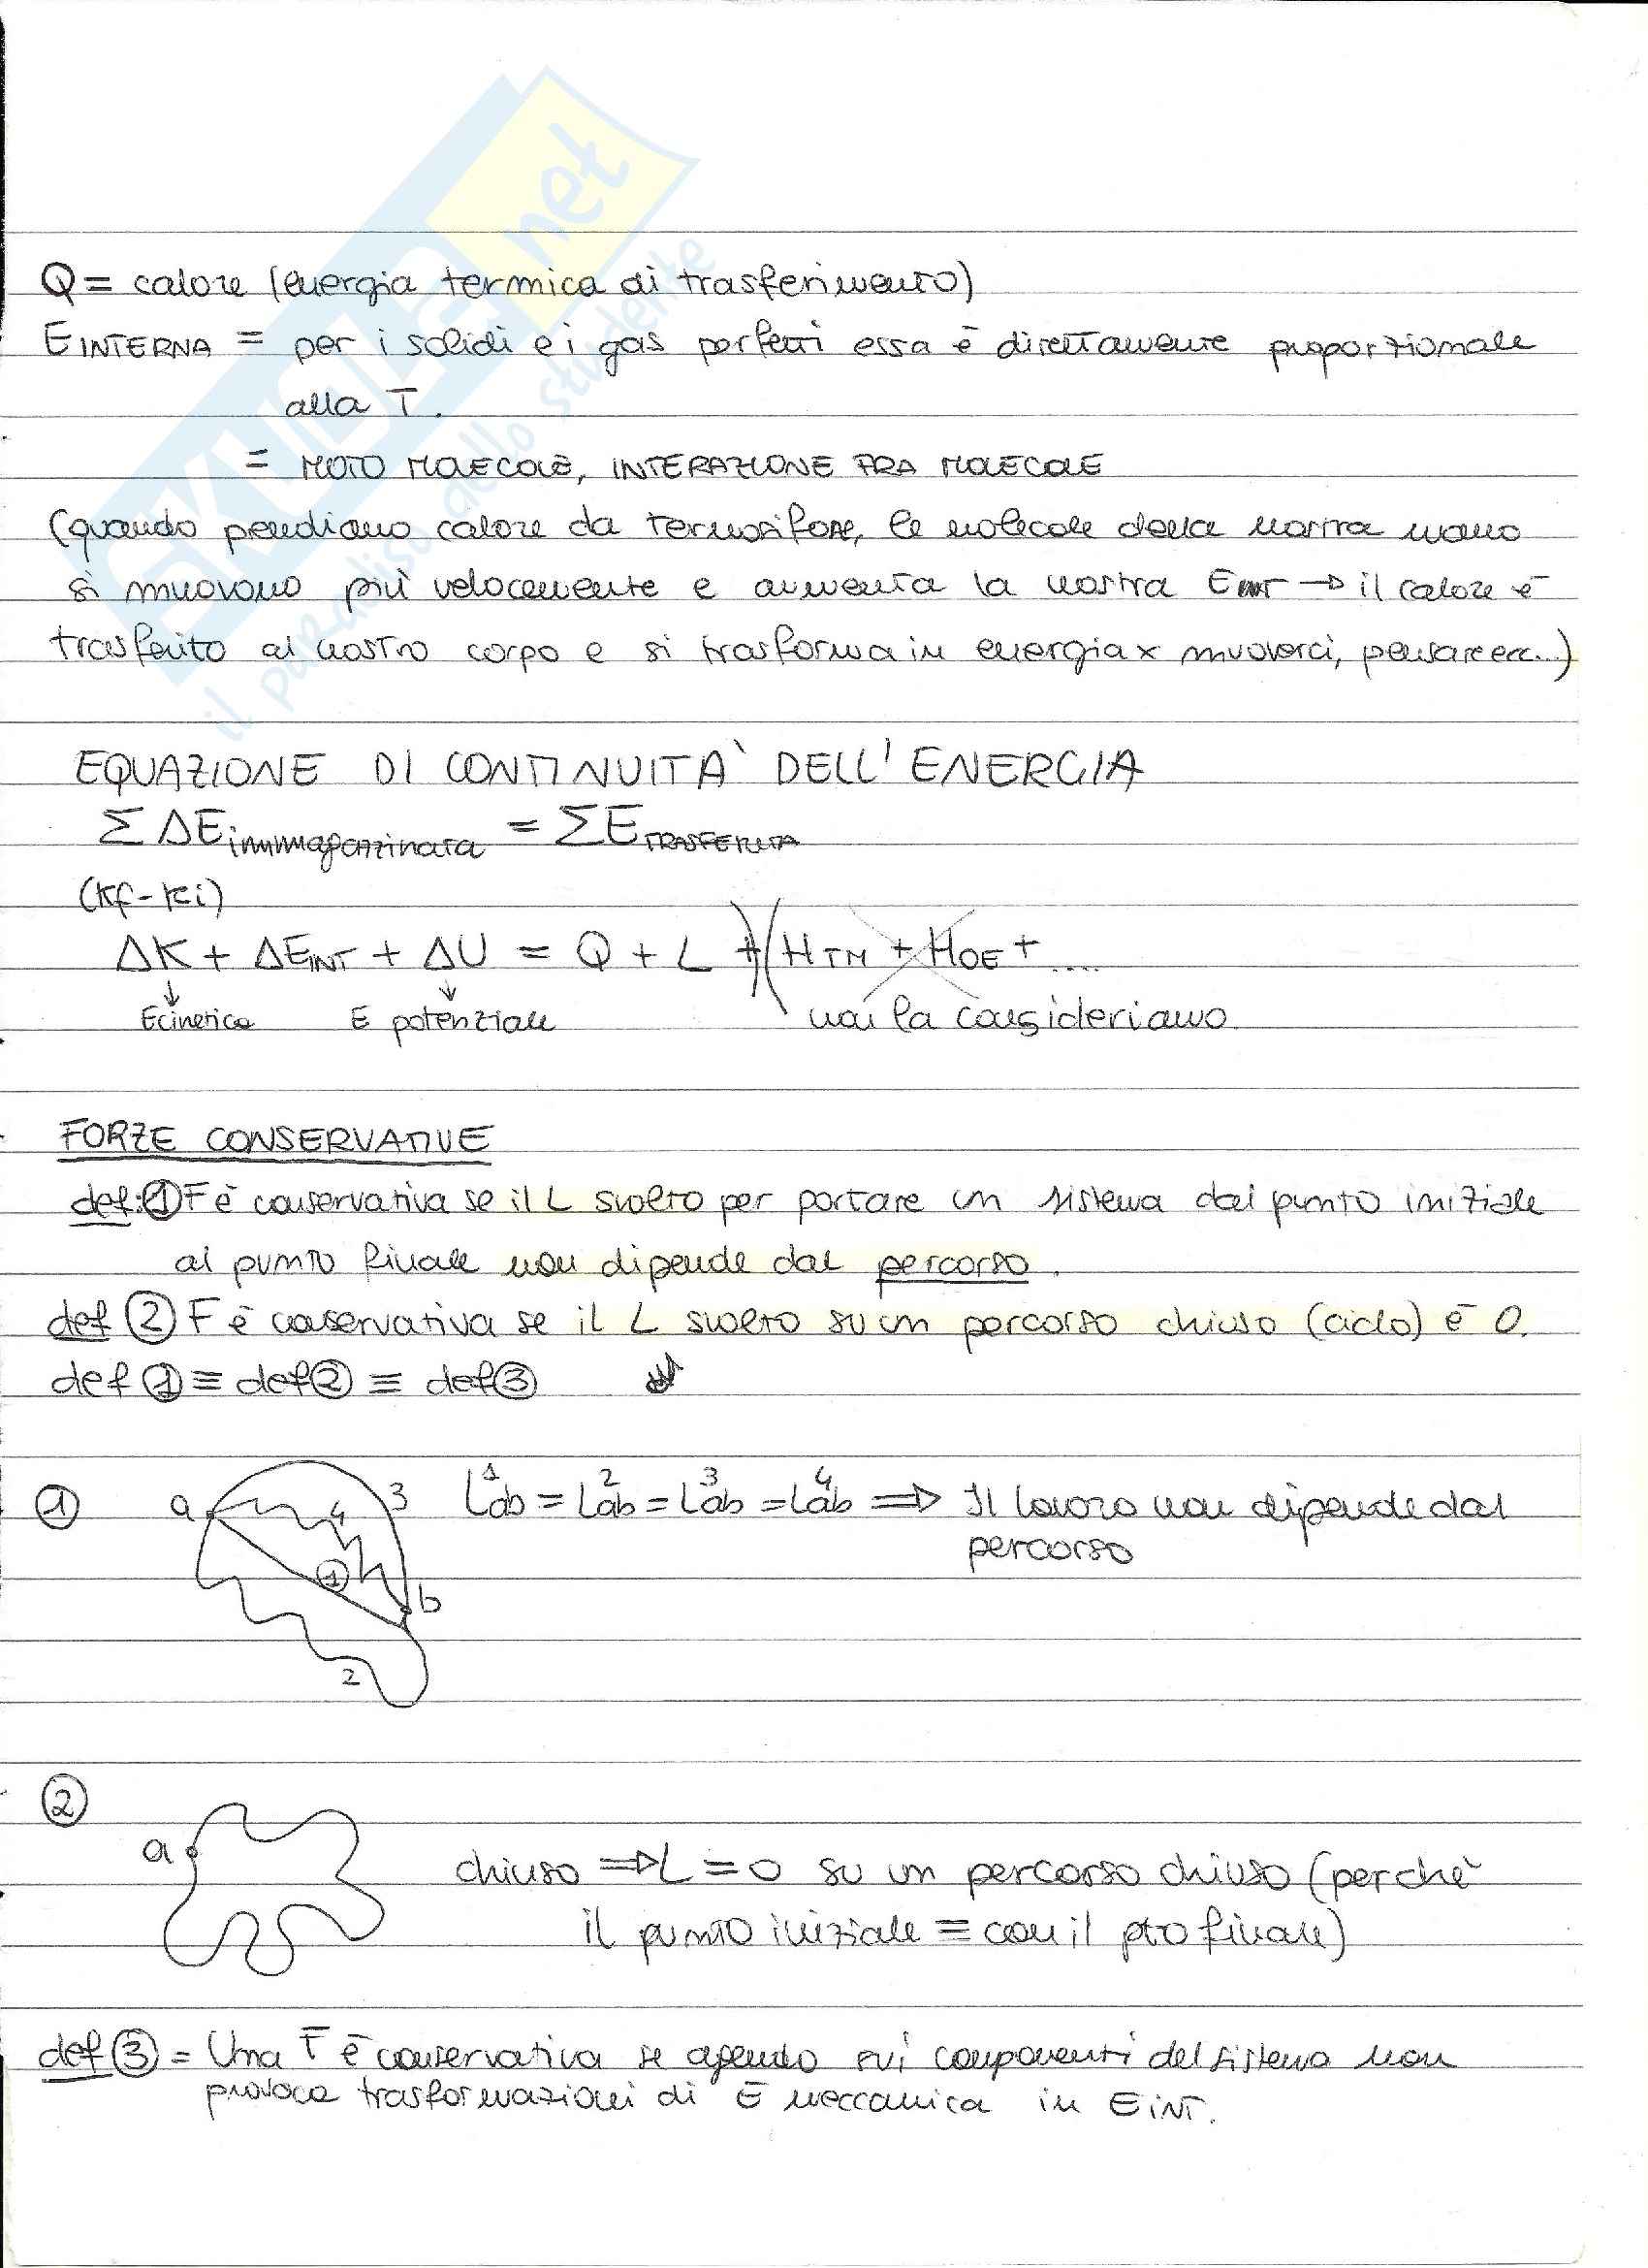 SKUOLA.net
il paradiso dello studente
Q = calore (energia termica di trasferimento)
E INTERNA = per i solidi e i gas perfetti essa è direttamente proporzionale
alla T.
= MOTO MOLECOLE, INTERAZIONE FRA MOLECOLE
(quando prendiamo calore da termosifone, le molecole della nostra mano
si muovono più velocemente e aumenta la nostra EINT → il calore è
trasferito al nostro corpo e si trasforma in energia x muoverci, pensare ecc...)
EQUAZIONE DI CONTINUITÀ DELL'ENERGIA
Σ ΔE immagazzinata = ΣE TRASFERITA
(Kf-Ki)
ΔK + ΔEINT + ΔU = Q + L + (HTM + HOE + ....
↓ ↓
Ecinetica E potenziale noi la consideriamo
FORZE CONSERVATIVE
def: ① F è conservativa se il L svolto per portare un sistema dal punto iniziale
al punto finale non dipende dal percorso.
def ② F è conservativa se il L svolto su un percorso chiuso (ciclo) è 0.
def ① ≡ def ② ≡ def ③
① a 4 3 ① b 2 L¹ab = L²ab = L³ab = L⁴ab ⇒ Il lavoro non dipende dal
percorso
②
a chiuso ⇒ L = 0 su un percorso chiuso (perchè
il punto iniziale = con il pto finale)
def ③ = Una F è conservativa se agendo sui componenti del sistema non
provoca trasformazioni di E meccanica in EINT.